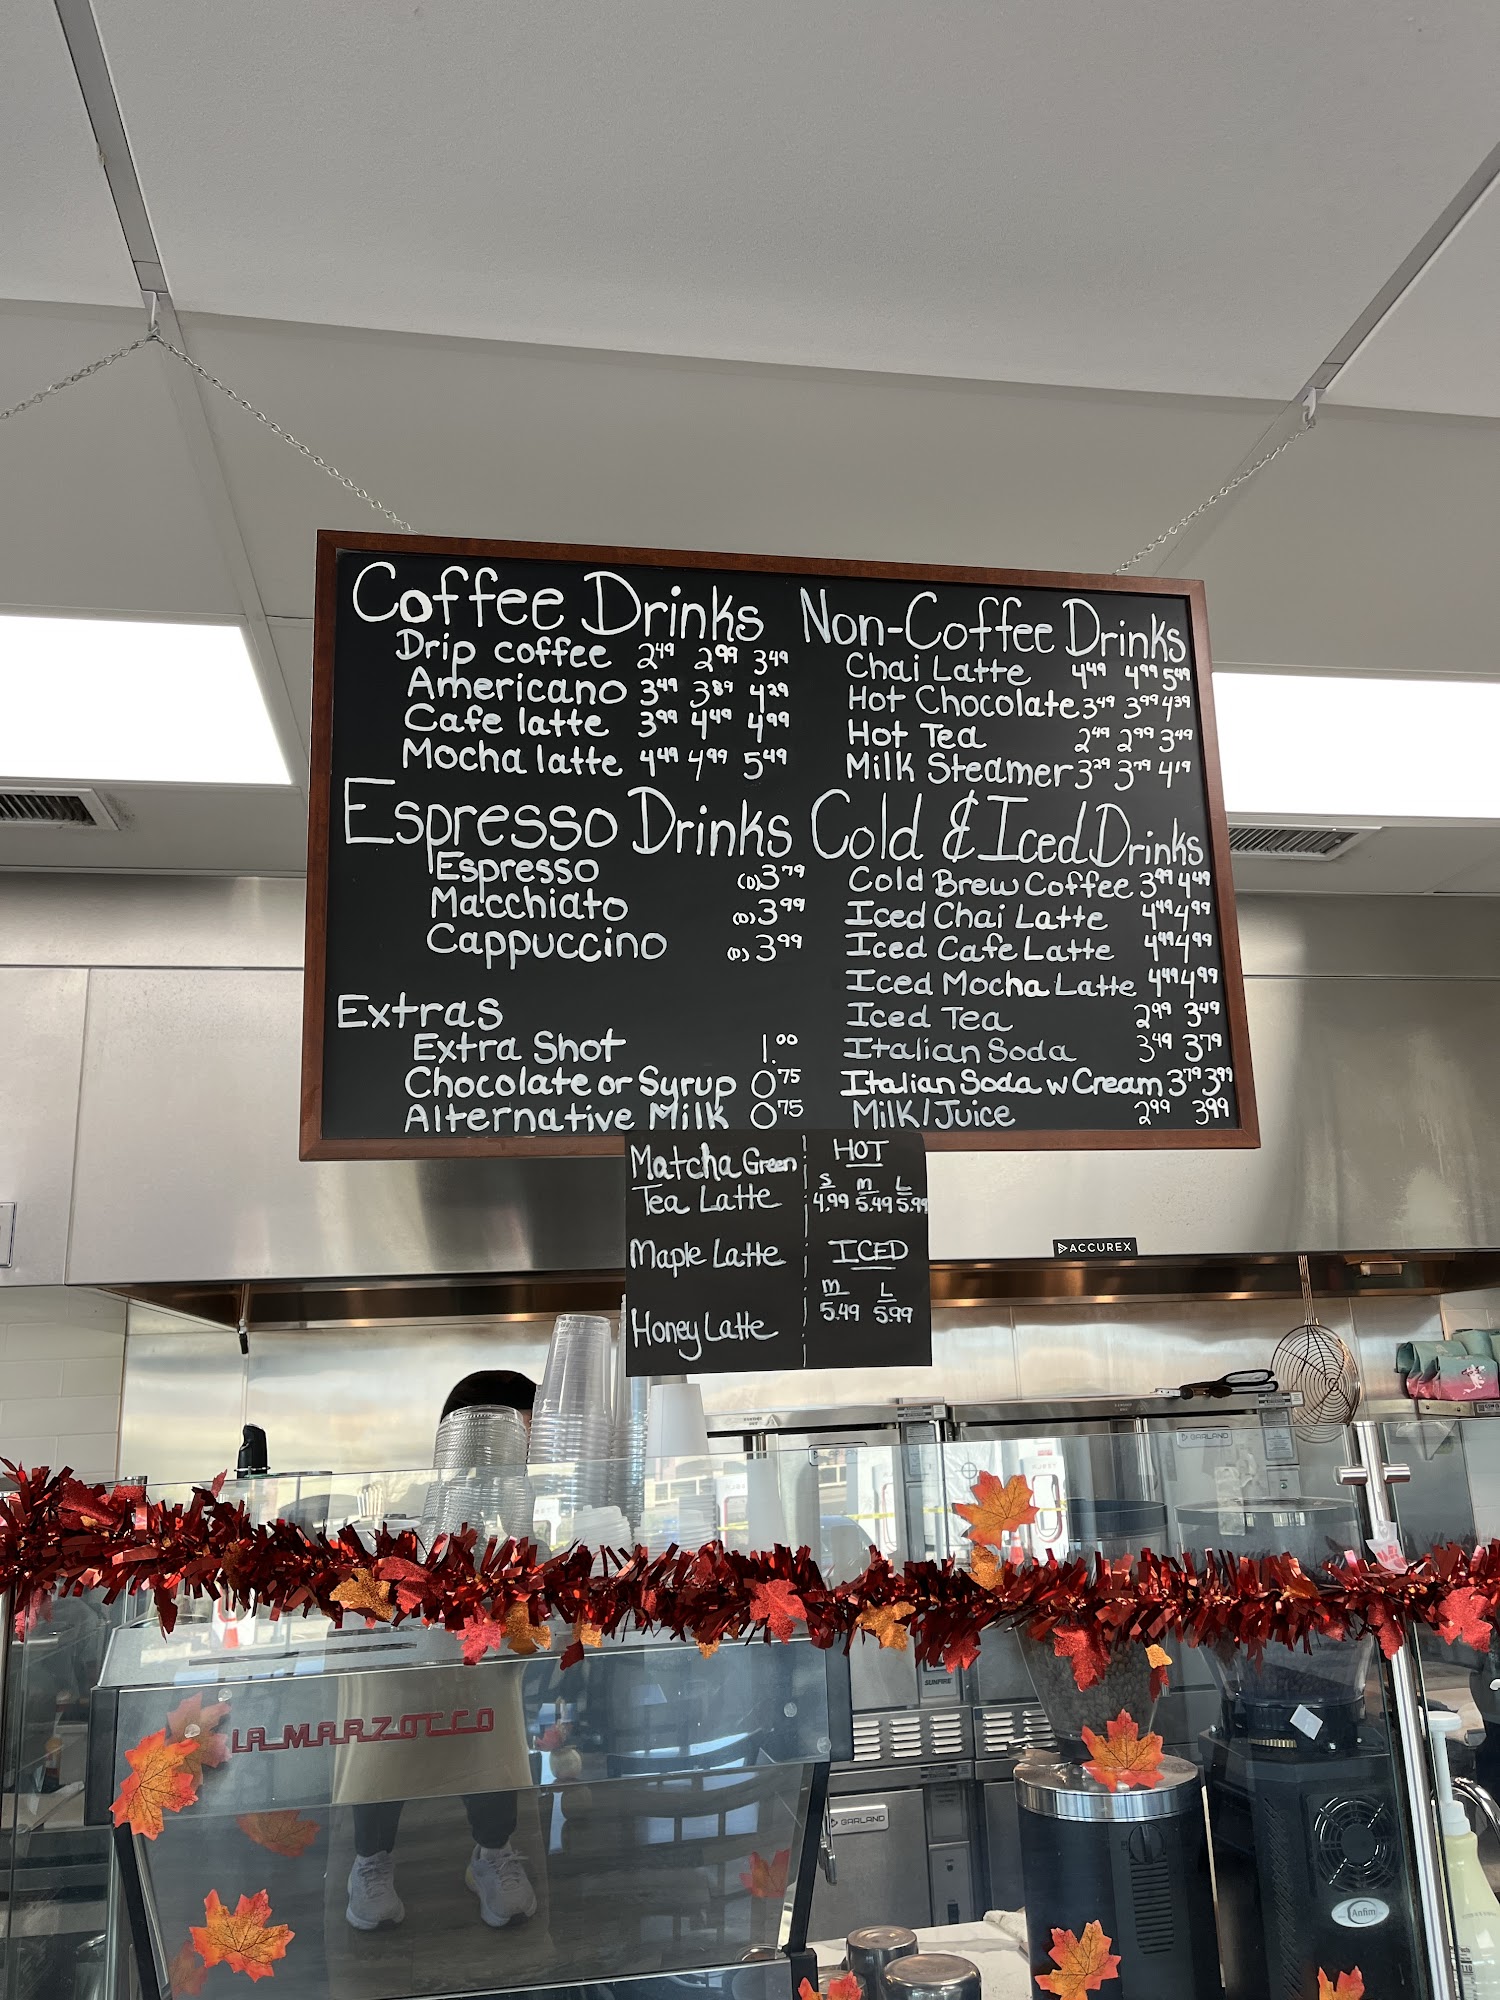 Coffee Drinks
Drip coffee 2.49 2.99 3.49
Americano 3.49 3.89 4.29
Cafe latte 3.99 4.49 4.99
Mocha latte 4.49 4.99 5.49
Espresso Drinks
Espresso (D) 3.79
Macchiato (D) 3.99
Cappuccino (D) 3.99
Extras
Extra Shot 1.00
Chocolate or Syrup 0.75
Alternative Milk 0.75
Non-Coffee Drinks
Chai Latte 4.49 4.99 5.49
Hot Chocolate 3.49 3.99 4.39
Hot Tea 2.49 2.99 3.49
Milk Steamer 3.29 3.79 4.19
Cold & Iced Drinks
Cold Brew Coffee 3.99 4.49
Iced Chai Latte 4.49 4.99
Iced Cafe Latte 4.49 4.99
Iced Mocha Latte 4.49 4.99
Iced Tea 2.99 3.49
Italian Soda 3.49 3.79
Italian Soda w Cream 3.79 3.99
Milk/Juice 2.99 3.99
Matcha Green
Tea Latte
Maple Latte
Honey Latte
HOT
S m L
4.99 5.49 5.99
ICED
m L
5.49 5.99
ACCUREX
GARLAND
LA MARZOCCO
SUNFIRE
GARLAND
Anfim